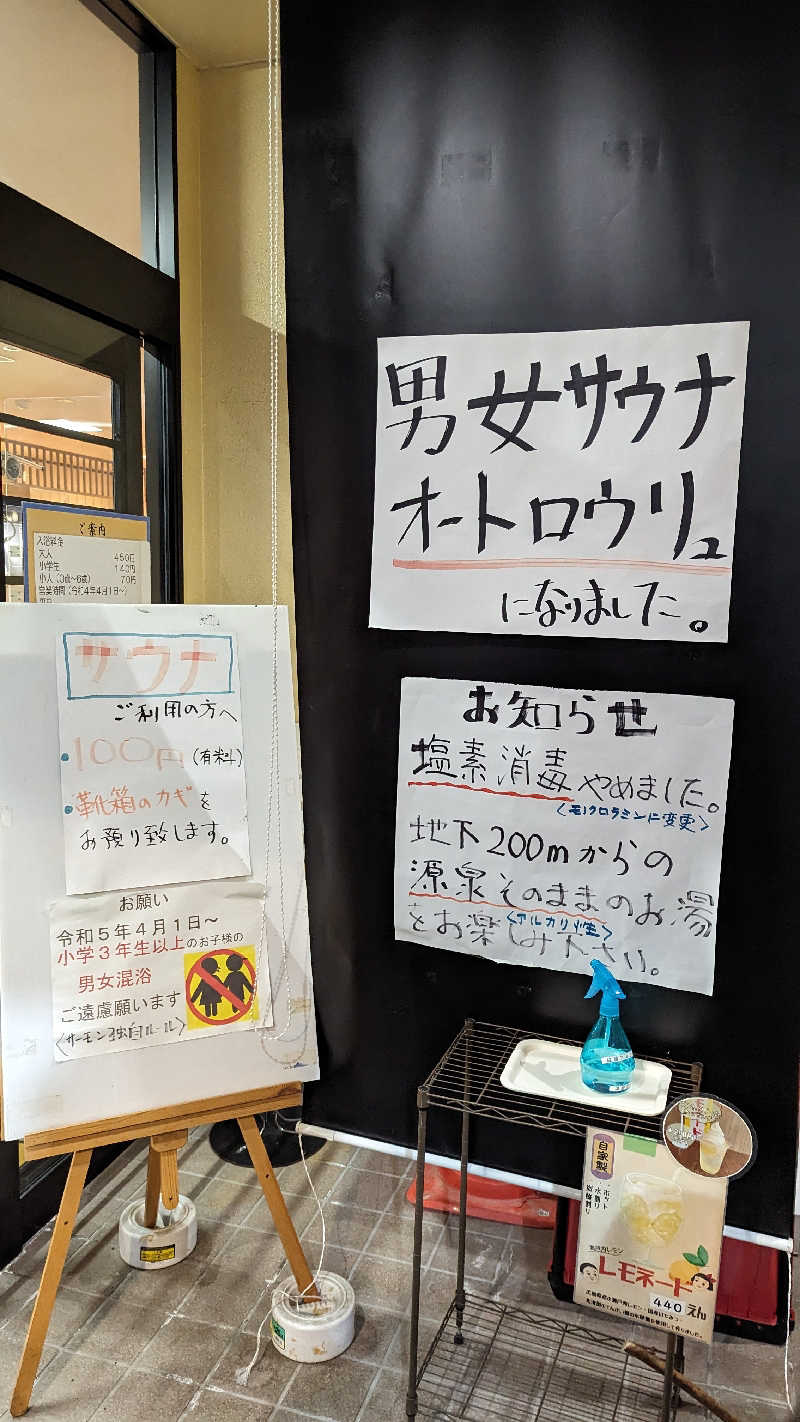 男女サウナ
オートロウリュ
になりました。
お知らせ
塩素消毒やめました。
<モノクロラミンに変更>
地下200mからの
源泉そのままのお湯
<アルカリ性>
をお楽しみ下さい。
ご案内
入浴料金
大人 450円
小学生 140円
小人(3歳~6歳) 70円
営業時間(令和4年4月1日~)
サウナ
ご利用の方へ
・100円(有料)
・靴箱のカギを
お預り致します。
お願い
令和5年4月1日~
小学3年生以上のお子様の
男女混浴
ご遠慮願います
<サーモン独自ルール>
自家製
ホット
水割り
炭酸割り
瀬戸内レモン
レモネード
440えん